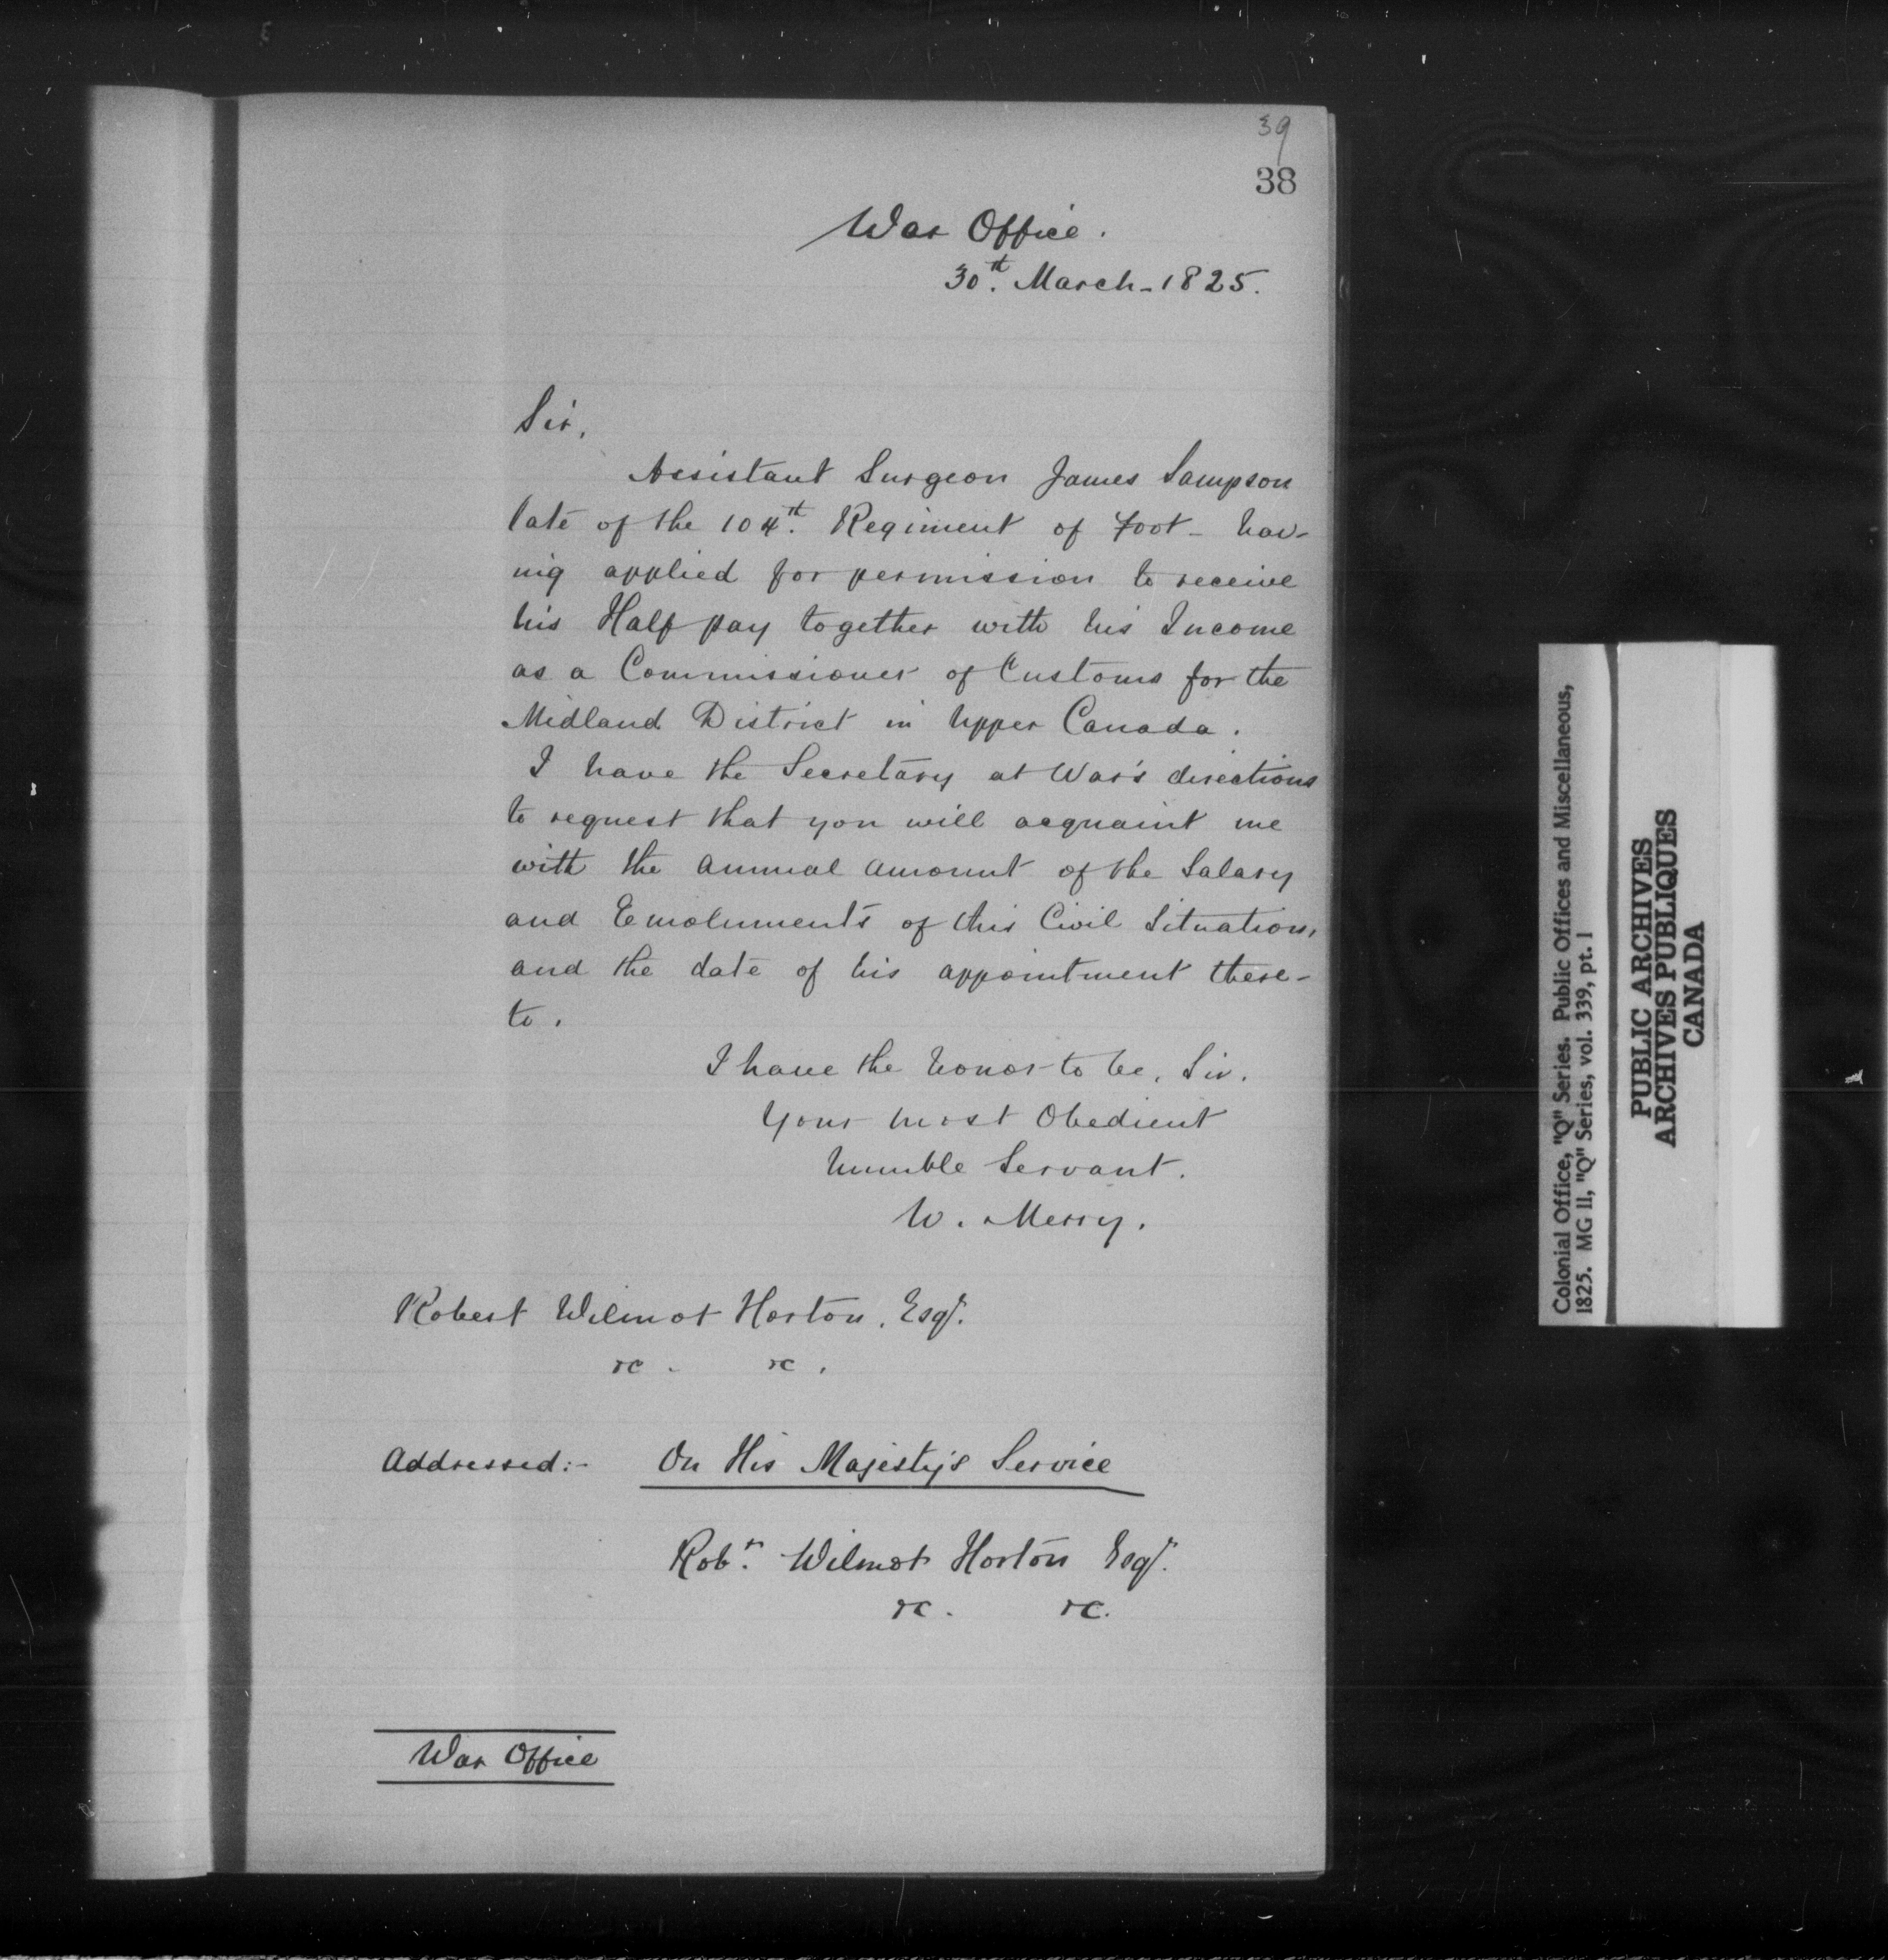 39
38
War Office.
30th. March - 1825.
Sir,
Assistant Surgeon James Sampson
late of the 104th. Regiment of Foot - hav-
ing applied for permission to receive
his Half pay together with his Income
as a Commissioner of Customs for the
Midland District in Upper Canada.
I have the Secretary at War's directions
to request that you will acquaint me
with the annual amount of the Salary
and Emoluments of this Civil Situation,
and the date of his appointment there-
to.
I have the honor to be, Sir.
Your most Obedient
humble Servant.
W. Merry.
Robert Wilmot Horton, Esqr.
&c. &c.
Addressed:- On His Majesty's Service
Robt. Wilmot Horton Esqr.
&c. &c.
War Office
Colonial Office, "Q" Series. Public Offices and Miscellaneous,
1825. MG 11, "Q" Series, vol. 339, pt. 1
PUBLIC ARCHIVES
ARCHIVES PUBLIQUES
CANADA